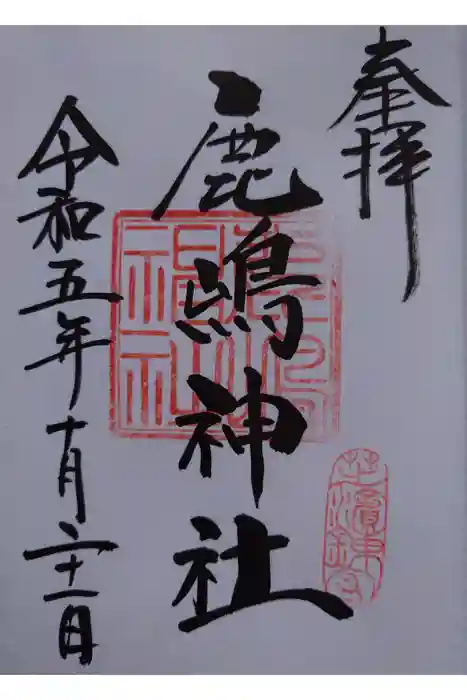 奉拝
鹿嶋神社
令和五年十月二十一日